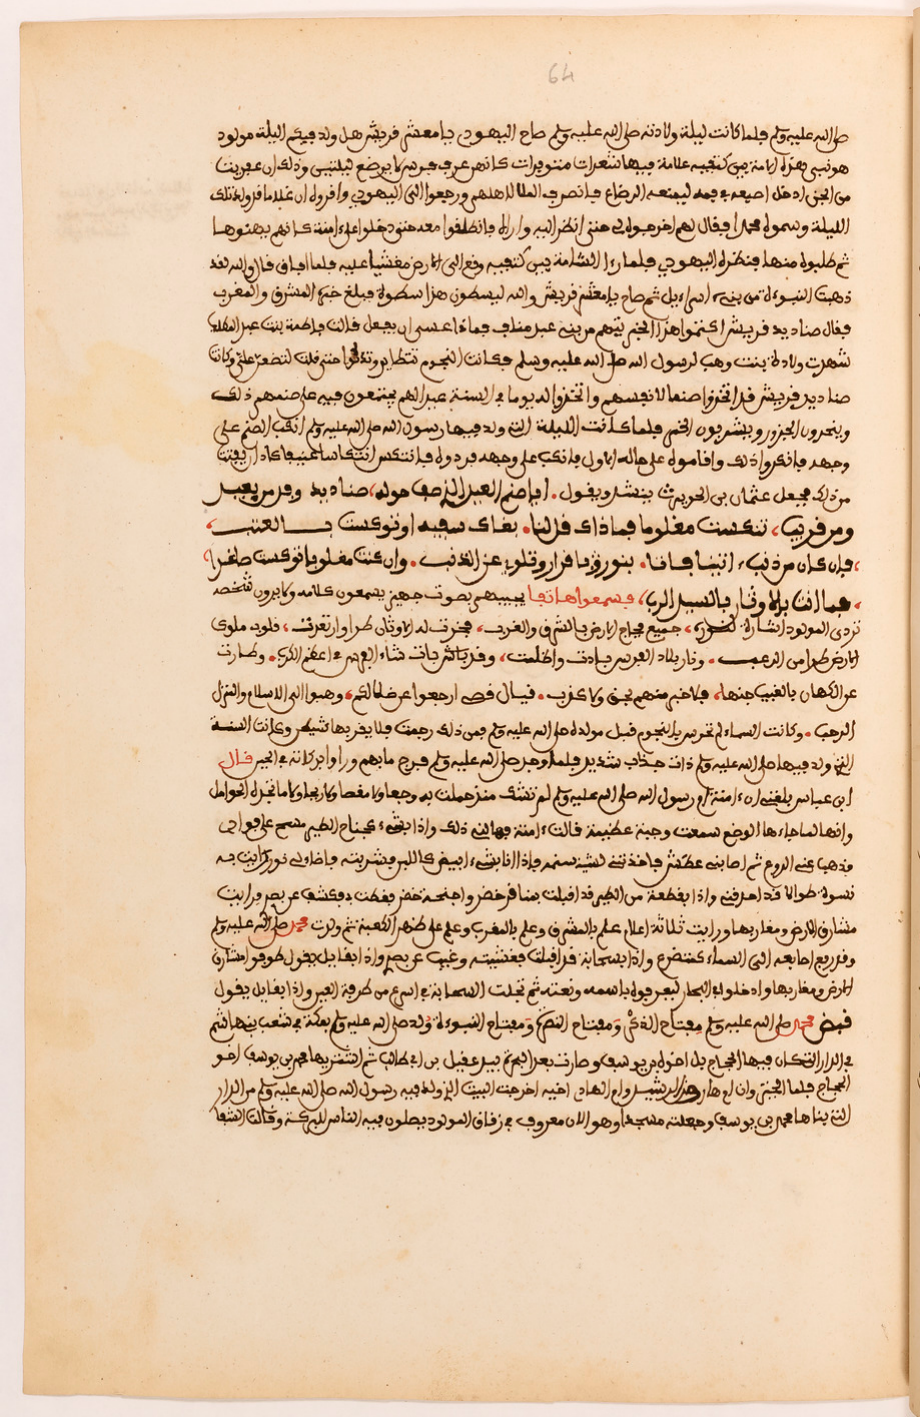 64
صلى الله عليه وسلم فلما كانت ليلة ولادته صلى الله عليه وسلم صاح اليهودي يا معشر قريش هل ولد فيكم الليلة مولود
هو نبي هذه الامة بين كتفيه علامة فيها شعرات متويرات كانهن عرف فرس لا يرضع ليلتين وذلك ان عفريتا
من الجن ادخل اصبعه في فمه ليمنعه الرضاع فانصرف الملا لاهلهم ورجعوا الى اليهودي واخبروه ان غلاما قد ولد تلك
الليلة وسموه محمدا فقال لهم اخرجوا بي حتى انظر اليه واراه فانطلقوا معه حتى دخلوا على ءامنة كانهم يهنوها
ثم طلبوه منها فنظره اليهودي فلما رءا الشامة بين كتفيه وقع الى الارض مغشيا عليه فلما افاق قال والله لقد
ذهبت النبوءة من بني اسراءيل ثم صاح يا معشر قريش والله ليسطون هذا سطوة يبلغ خبرها المشرق والمغرب
فقال صناديد قريش اكتموا هذا الخبر فماذا عسى ان يفعل قالت فاطمة بنت عبد الله
شهدت ولادة بنت وهب لرسول الله صلى الله عليه وسلم فكانت النجوم تتطاير حتى قلت لتقعن علي وكانت
صناديد قريش قد اتخذوا صنما لانفسهم واتخذوا له يوما في السنة عيدا لهم يجتمعون فيه على صنمهم ذلك
وينحرون الجزور ويشربون الخمر فلما كانت الليلة التي ولد فيها رسول الله صلى الله عليه وسلم انكب الصنم على
وجهه فانكروا ذلك واقاموه على حاله الاول فانكب على وجهه فردوه فانتكس انتكاسا عنيفا
من ذلك فجعل عثمان بن الحويرث ينشد ويقول. ايا صنم العيد الذي صف حوله، صناديد وفد من بعيد
ومن قريب، تنكست مغلوبا فما ذاك قل لنا. بغاك سفيه او نوكست بالعتب،
فان كان من ذنب، اتينا فاننا. بنوء باقرار ونلوي عن الذنب. وان كنت مغلوبا نوكست صاغرا،
فما انت بالاوثان بالسيد الرب، فسمعوا هاتفا يجيبهم بصوت جهير يسمعون كلامه ولا يرون شخصه
تردى لمولود انارت لنوره، جميع فجاج الارض بالشرق والغرب، فخرت له الاوثان طرا وارتعدت، قلوب ملوك
الارض طرا من الرعب. ونار بلاد الفرس بادت واظلمت، وقد بات شاه الفرس في اعظم الكرب. وصارت
عن الكهان بالغيب جنها، فلا مخبر منهم بحق ولا كذب. فيال قصي ارجعوا عن ضلالكم، وهبوا الى الاسلام والمنزل
الرحب. وكانت السماء لم تحرس بالنجوم قبل مولده صلى الله عليه وسلم فمن ذلك رجمت فلا يقربها شيطان وكانت السنة
التي ولد فيها صلى الله عليه وسلم ذات جذب شديد فلما وجد صلى الله عليه وسلم فرج ما بهم وراوا بركاته في الحين قال
ابن عباس بلغني ان ءامنة ام رسول الله صلى الله عليه وسلم لم تشك منذ حملت به وجعا ولا مغصا ولا ريحا ولا ما تجده الحوامل
وانها لما جاءها الوضع سمعت وجبة عظيمة قالت ءامنة فهالني ذلك واذا بشيء كجناح الطير مسح على فوادي
فذهب عني الروع ثم اصابني عطش فاخذتني لشيء سنة فاذا انا بشيء ابيض كاللبن فشربته فاضاء لي نور ثم رايت
نسوة طوالا قد احدقن بي واذا بقطعة من الطير قد اقبلت بمناقر خضر واجنحة خضر فغطت بي فكشف عن بصري فرايت
مشارق الارض ومغاربها ورايت ثلاثة اعلام علم بالمشرق وعلم بالمغرب وعلم على ظهر الكعبة ثم ولدت محمدا صلى الله عليه وسلم
وقد رفع اصابعه الى السماء كمتضرع واذا بسحابة قد اقبلت فغشيته وغيب عن بصري واذا بقايل يقول طوفوا مشارق
الارض ومغاربها وادخلوه البحار ليعرفوه باسمه ونعته ثم تجلت السحابة في اسرع من طرفة العين واذا بقايل يقول
قبض محمد صلى الله عليه وسلم مفتاح الذكر ومفتاح النصر ومفتاح النبوءة ولد صلى الله عليه وسلم بمكة في شعب بني هاشم
في الدار التي كان فيها الحجاج بل اخوه بن يوسف وصارت بعد الهجرة بيد عقيل بن ابي طالب ثم اشتراها محمد بن يوسف اخو
الحجاج فلما وان ام هارون الرشيد وام الهادي اخيه اخرجت البيت الذي ولد فيه رسول الله صلى الله عليه وسلم من الدار
التي بناها محمد بن يوسف وجعلته مسجدا وهو الان معروف في زقاق المولد يصلون فيه الناس للبركة وقالت الشفا